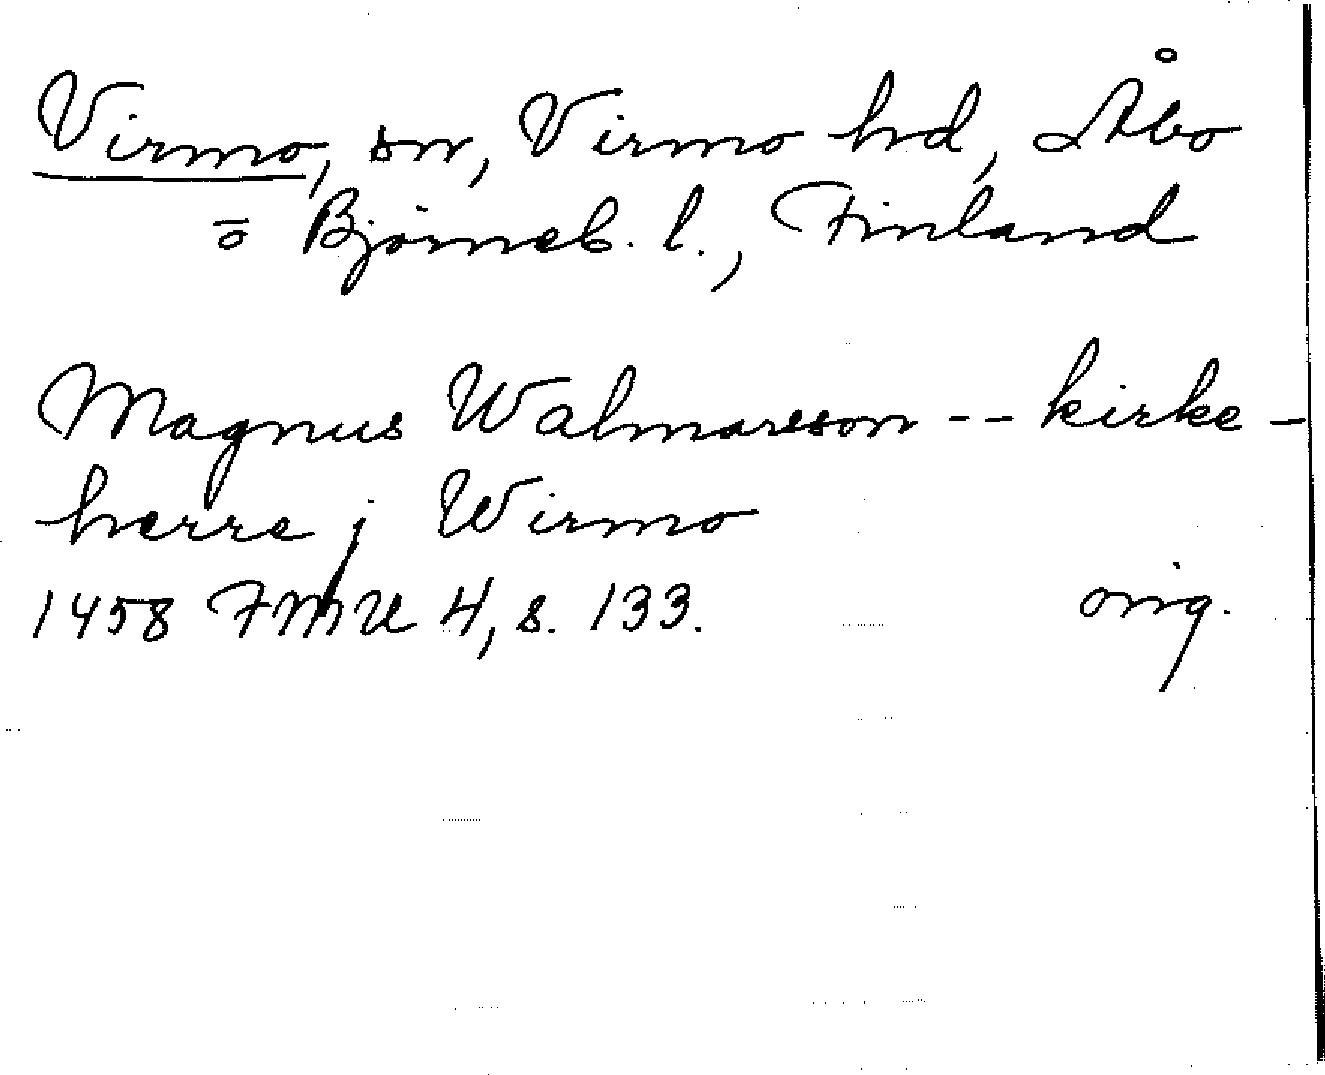 Virmo, sn, Virmo hd, Åbo
o Björneb. l., Finland
Magnus Walmarsson -- kirke-
herre j Wirmo
1458 FMU 4, s. 133. orig.